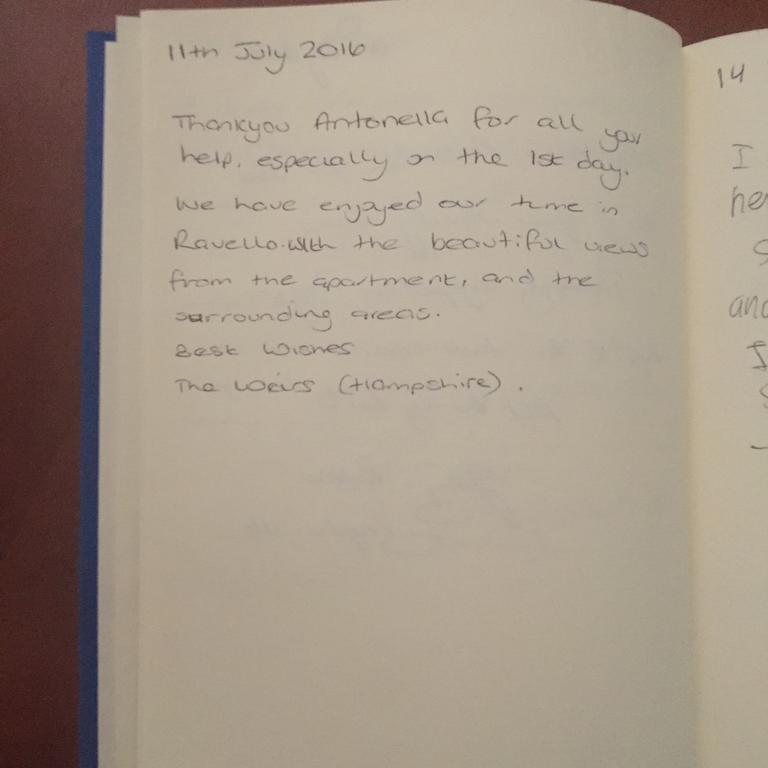 11th July 2016
Thankyou Antonella for all your
help, especially on the 1st day.
We have enjoyed our time in
Ravello.with the beautiful views
from the apartment, and the
surrounding areas.
Best Wishes
The Weirs (Hampshire).
14
I